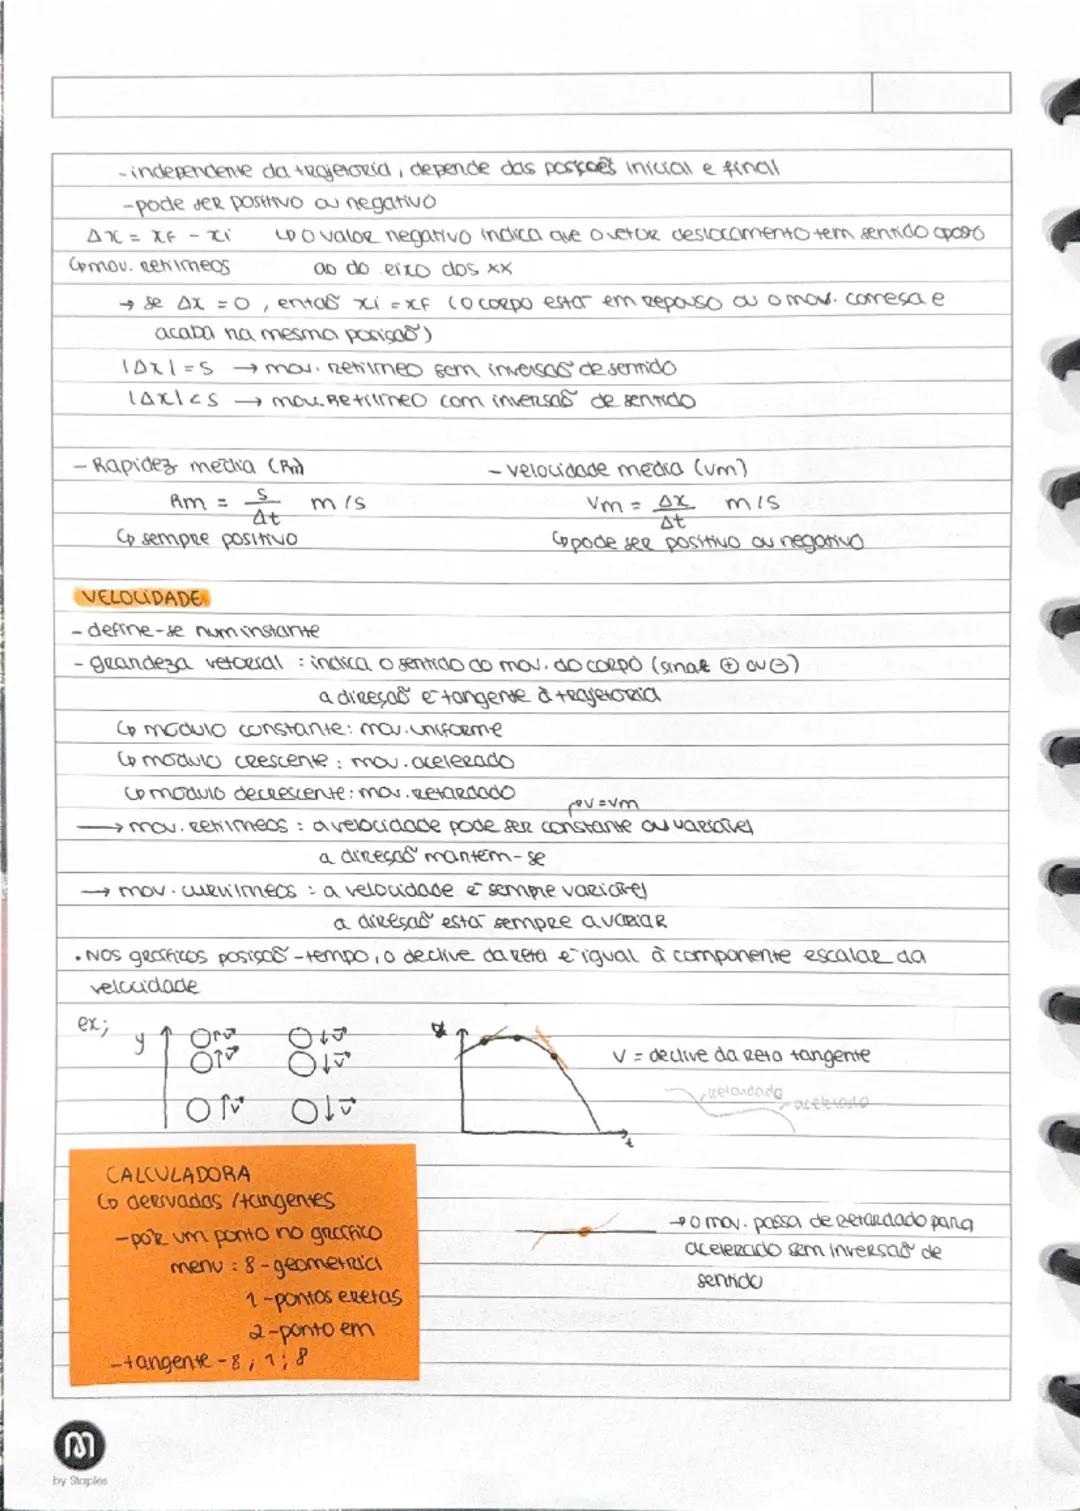 - independente da trajetória, depende das posições inicial e final
- pode ser positivo ou negativo
Δx = xf - xi ↳ o valor negativo indica que o vetor deslocamento tem sentido oposto
↳ mov. retilíneos ao do eixo dos xx
→ se Δx = 0, então xi = xf (o corpo estar em repouso ou o mov. começa e
acaba na mesma posição)
|Δx| = s → mov. retilíneo sem inversão de sentido
|Δx| < s → mov. retilíneo com inversão de sentido
- Rapidez média (Rm) - velocidade média (vm)
Rm = s/Δt m/s Vm = Δx/Δt m/s
↳ sempre positivo ↳ pode ser positivo ou negativo
VELOCIDADE
- define-se num instante
- grandeza vetorial : indica o sentido do mov. do corpo (sinal ⊕ ou ⊖)
a direção é tangente à trajetória
↳ módulo constante: mov. uniforme
↳ módulo crescente : mov. acelerado
↳ módulo decrescente: mov. retardado
v = vm
→ mov. retilíneos : a velocidade pode ser constante ou variável
a direção mantém-se
→ mov. curvilíneos : a velocidade é sempre variável
a direção está sempre a variar
• Nos gráficos posição-tempo, o declive da reta é igual à componente escalar da
velocidade
ex;
y v⃗ v⃗
v⃗ v⃗
v⃗ v⃗
t
v = declive da reta tangente
retardado
acelerado
CALCULADORA
↳ derivadas / tangentes
- pôr um ponto no gráfico
menu : 8 - geometrici
1 - pontos e retas
2 - ponto em
- tangente - 8 ; 1 ; 8
→ o mov. passa de retardado para
acelerado sem inversão de
sentido
by Staples